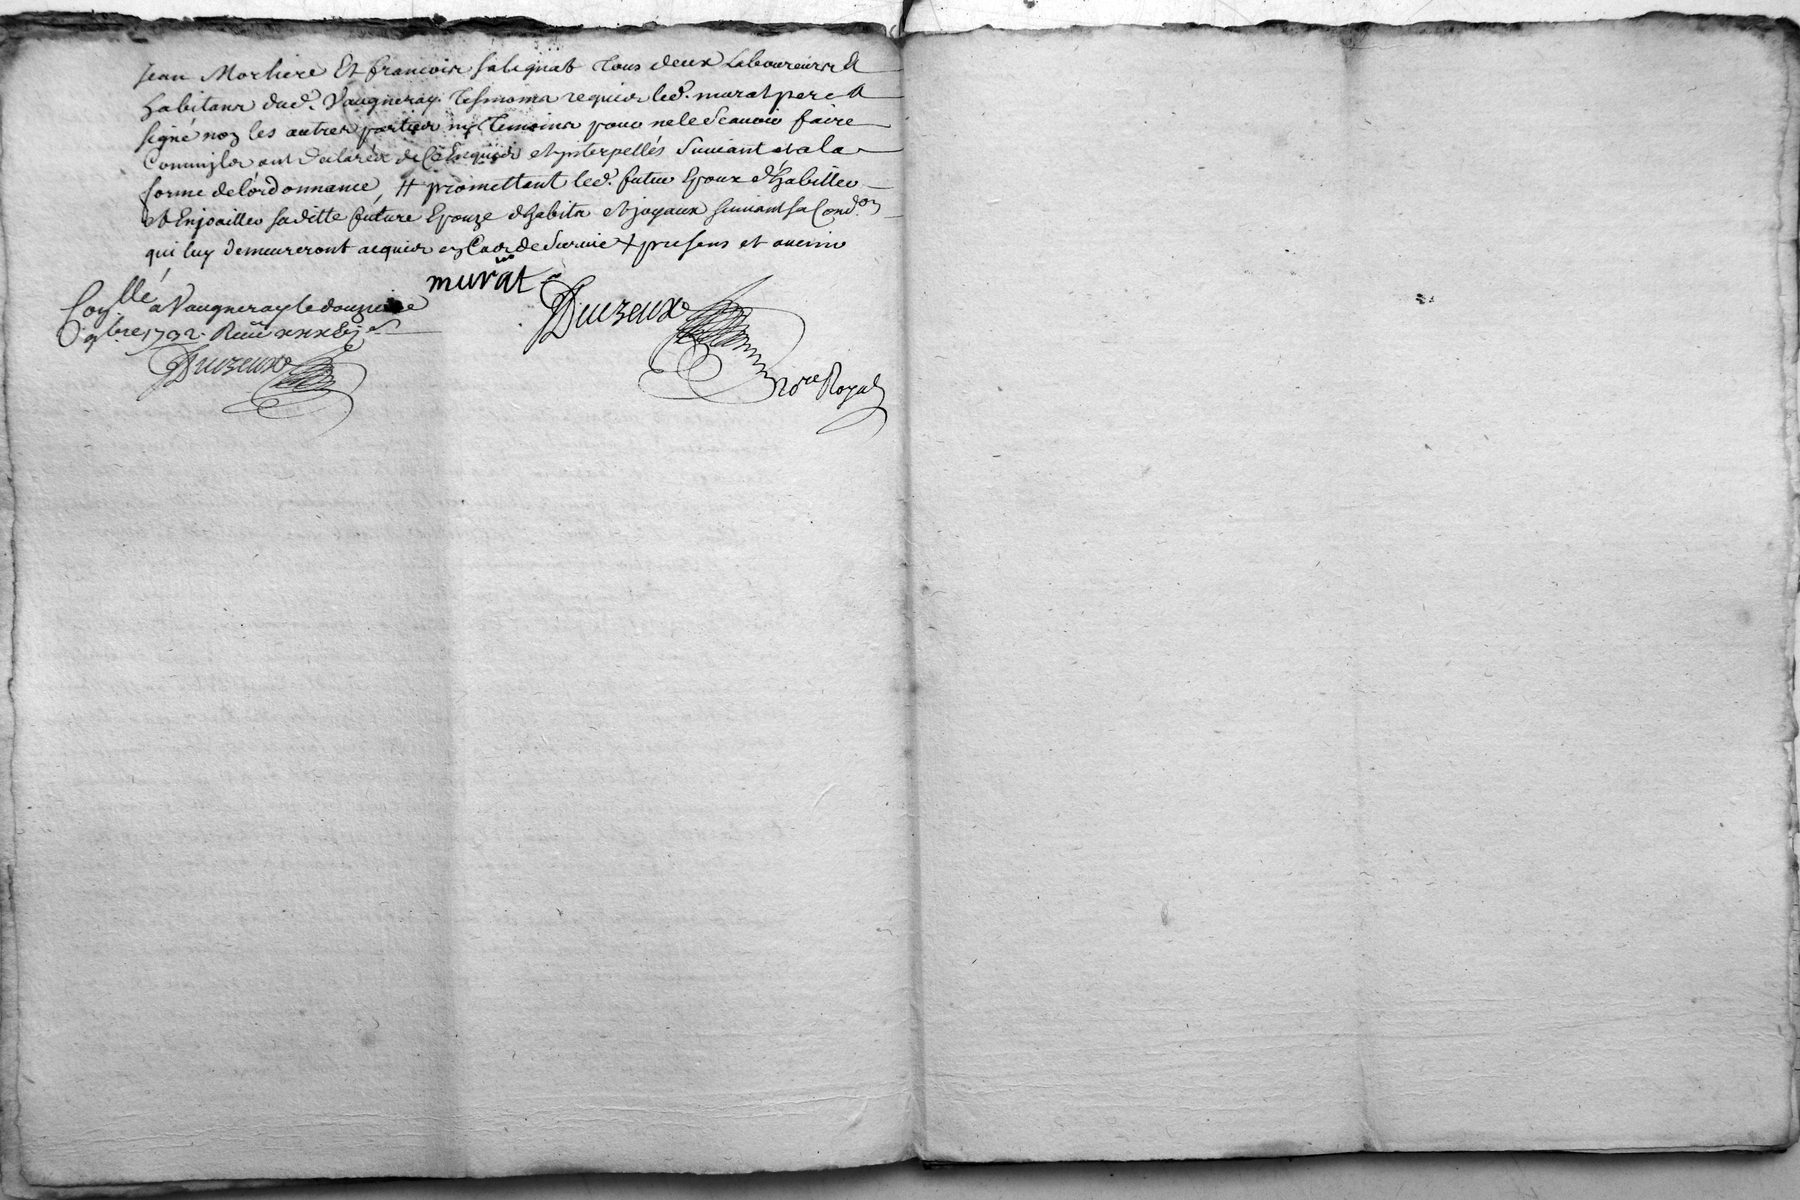 Jean Morliere Et francois salignat Tous deux Laboureurs &
habitans dud. Vaugneray. Tesmoins requis led. murat pere a
signé non les autres parties ny Temoins pour ne le scavoir faire
Comm' ils ont declaréz de Ce Enquis et interpellés Suivant et a la
forme de lordonnance, # promettant led. futur Epoux d'habiller
et Enjoailler sa ditte future Epouze d'habits et joyaux suivant sa Cond.on
qui luy demeureront acquis en Cas de Survie + presens et avenir
murat
Duzeux
Con.llé a Vaugneray le douzieme
9bre 1732. Receu
Duzeux
No.re Royal